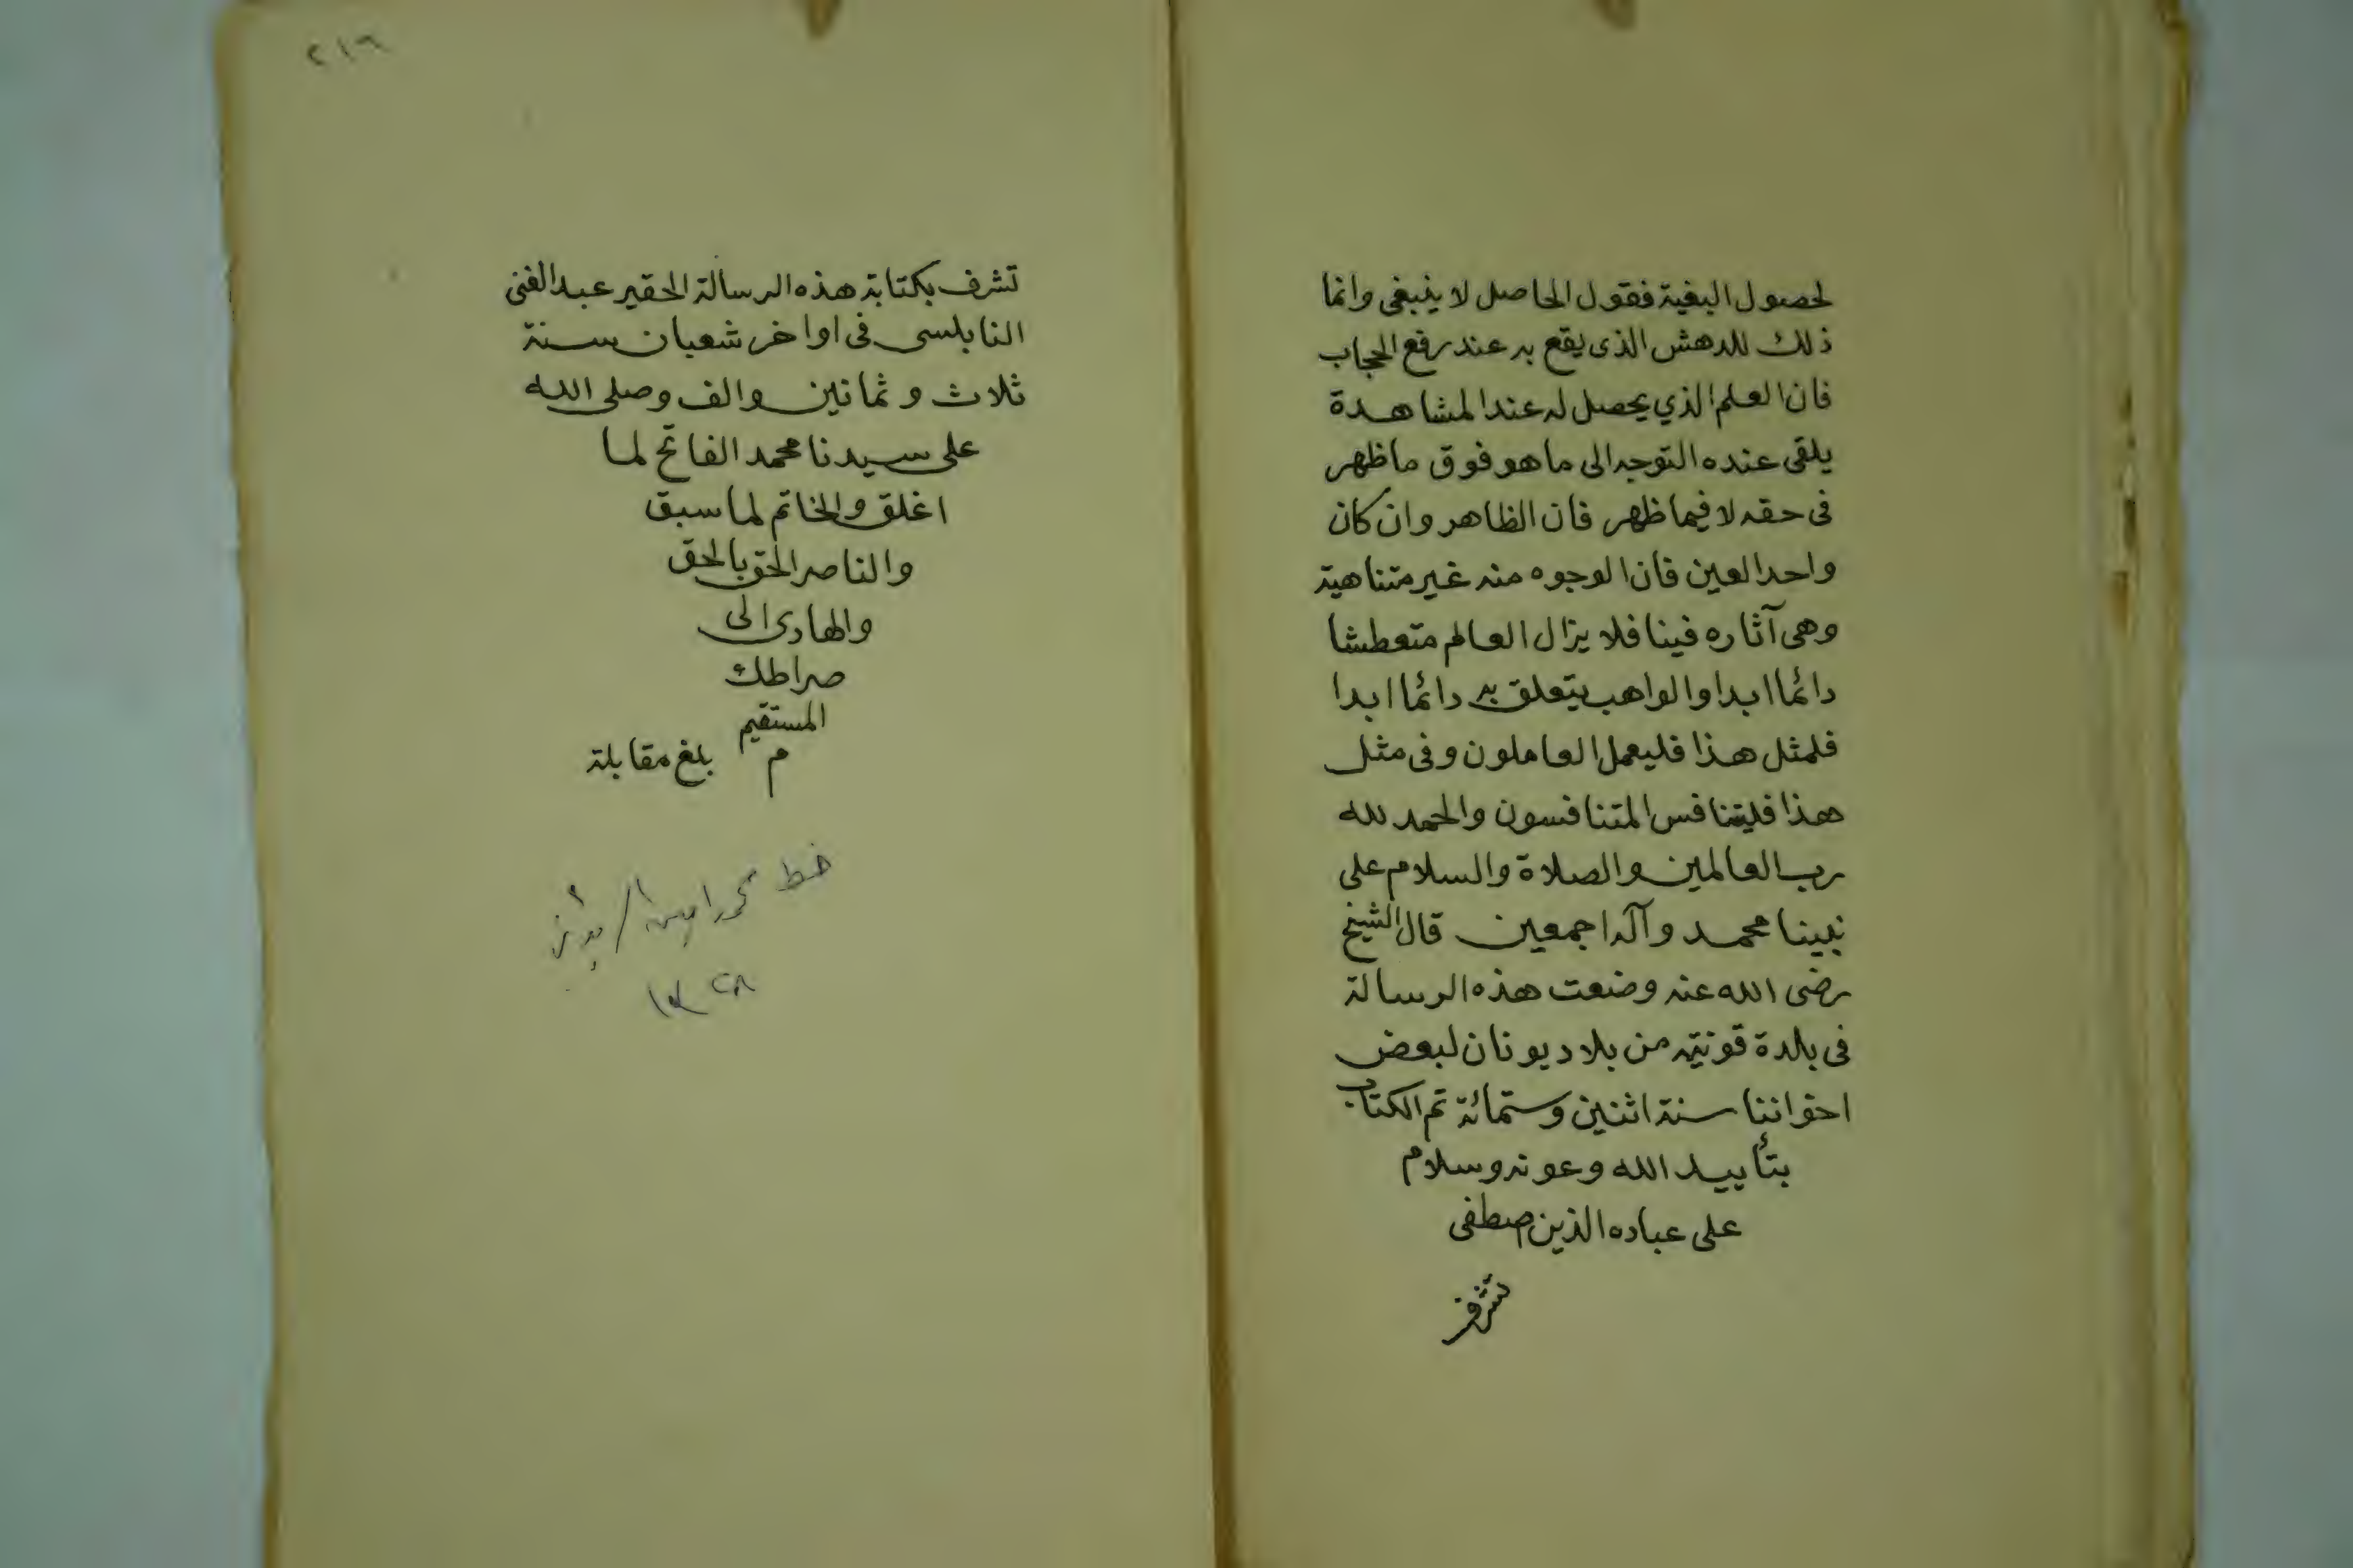 لحصول البغية فقول الحاصل لا ينبغى وانما
ذلك للدهش الذى يقع به عند رفع الحجاب
فان العلم الذي يحصل له عند المشاهدة
يلقى عنده التوجه الى ما هو فوق ما ظهر
فى حقه لا فيما ظهر فان الظاهر وان كان
واحد العين فان الوجوه منه غير متناهية
وهى آثاره فينا فلا يزال العالم متعطشا
دائما ابدا والواهب يتعلق به دائما ابدا
فلمثل هذا فليعمل العاملون وفى مثل
هذا فليتنافس المتنافسون والحمد لله
رب العالمين والصلاة والسلام على
نبينا محمد وآله اجمعين قال الشيخ
رضى الله عنه وضعت هذه الرسالة
فى بلدة قونيه من بلاد يونان لبعض
اخواننا سنة اثنين وستمائة تم الكتاب
بتأييد الله وعونه وسلام
على عباده الذين اصطفى
تشرف
٢١٦
تشرف بكتابة هذه الرسالة الحقير عبد الغنى
النابلسى فى اواخر شعبان سنة
ثلاث وثمانين والف وصلى الله
على سيدنا محمد الفاتح لما
اغلق والخاتم لما سبق
والناصر الحق بالحق
والهادى الى
صراطك
المستقيم
م بلغ مقابلة
خط محمد امين